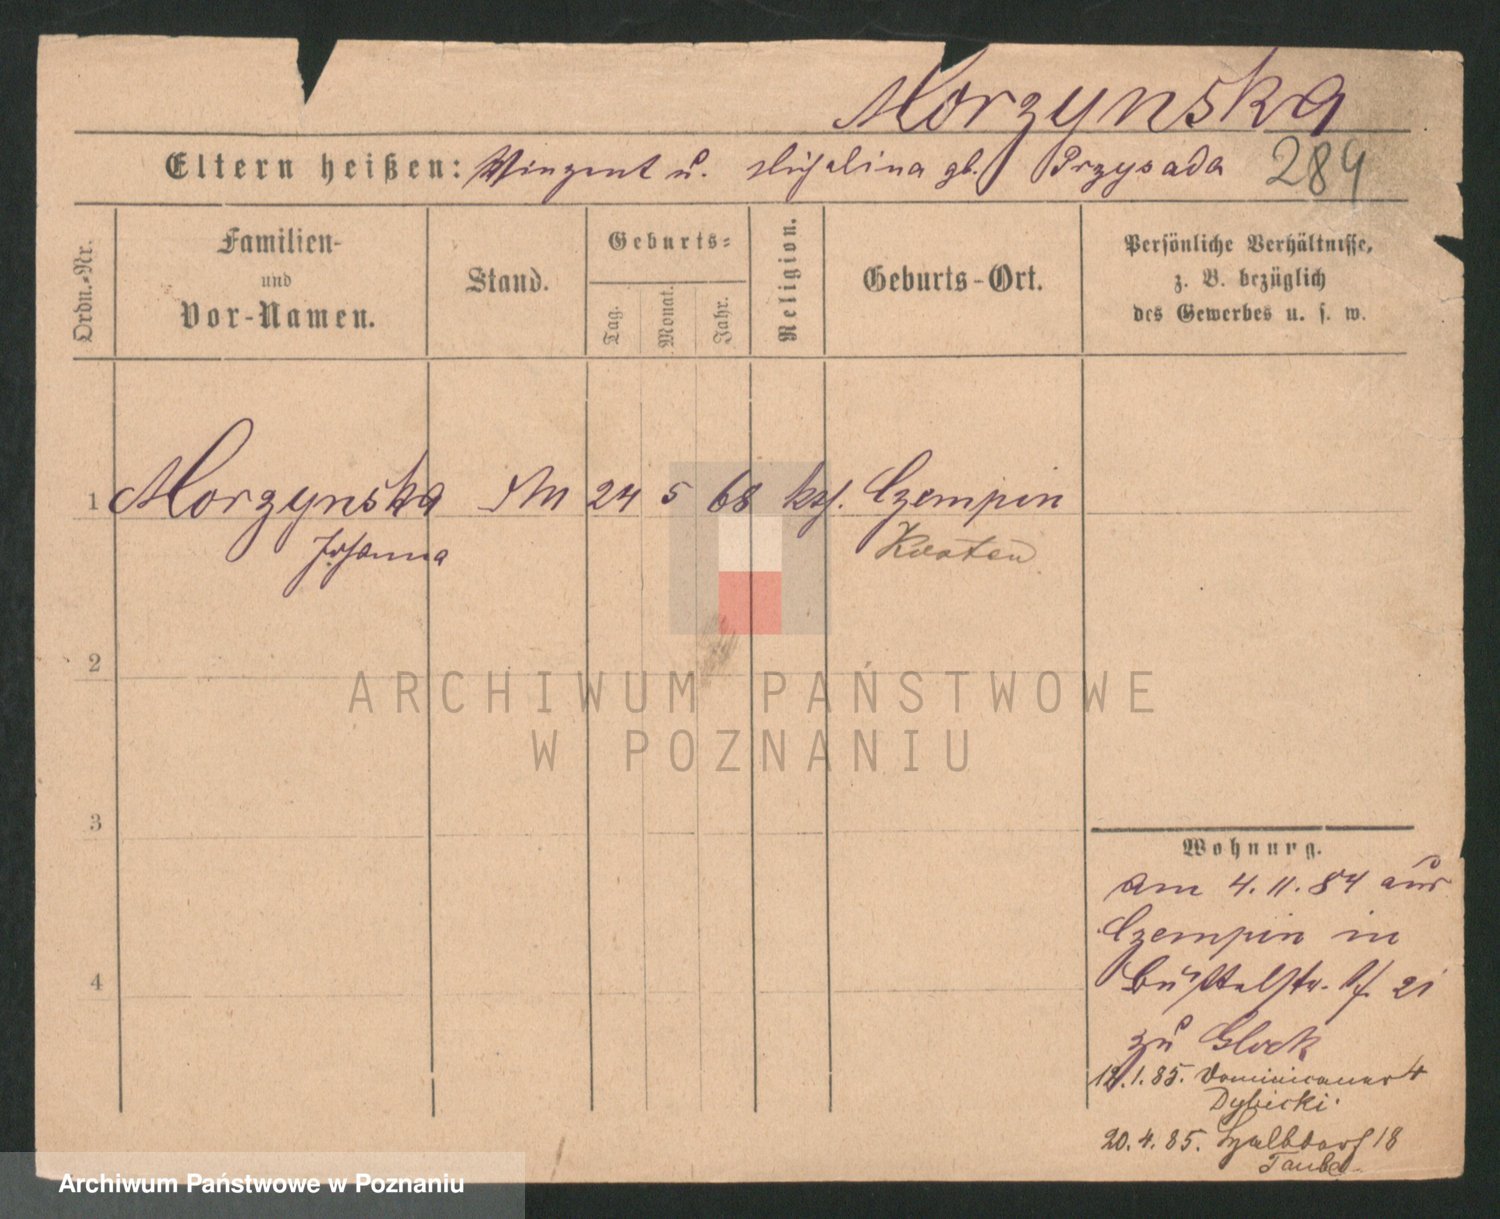 Morzynska
Eltern heißen: Vinzent u. Michalina gb. Przysada 284
Ordn.-Nr.
Familien-
und
Vor-Namen.
Stand.
Geburts-
Tag.
Monat.
Jahr.
Religion.
Geburts-Ort.
Persönliche Verhältnisse,
z. B. bezüglich
des Gewerbes u. s. w.
1 Morzynska 24 5 68 kth. Czempin
Johanna Kosten
2
3
4
ARCHIWUM PAŃSTWOWE
W POZNANIU
Wohnung.
am 4. 11. 84 aus
Czempin in
Büttelstr. 21
zu Glock
12.1.85. Dominicaner 4
Dybicki.
20.4.85. Halbdorf 18
Taube
Archiwum Państwowe w Poznaniu